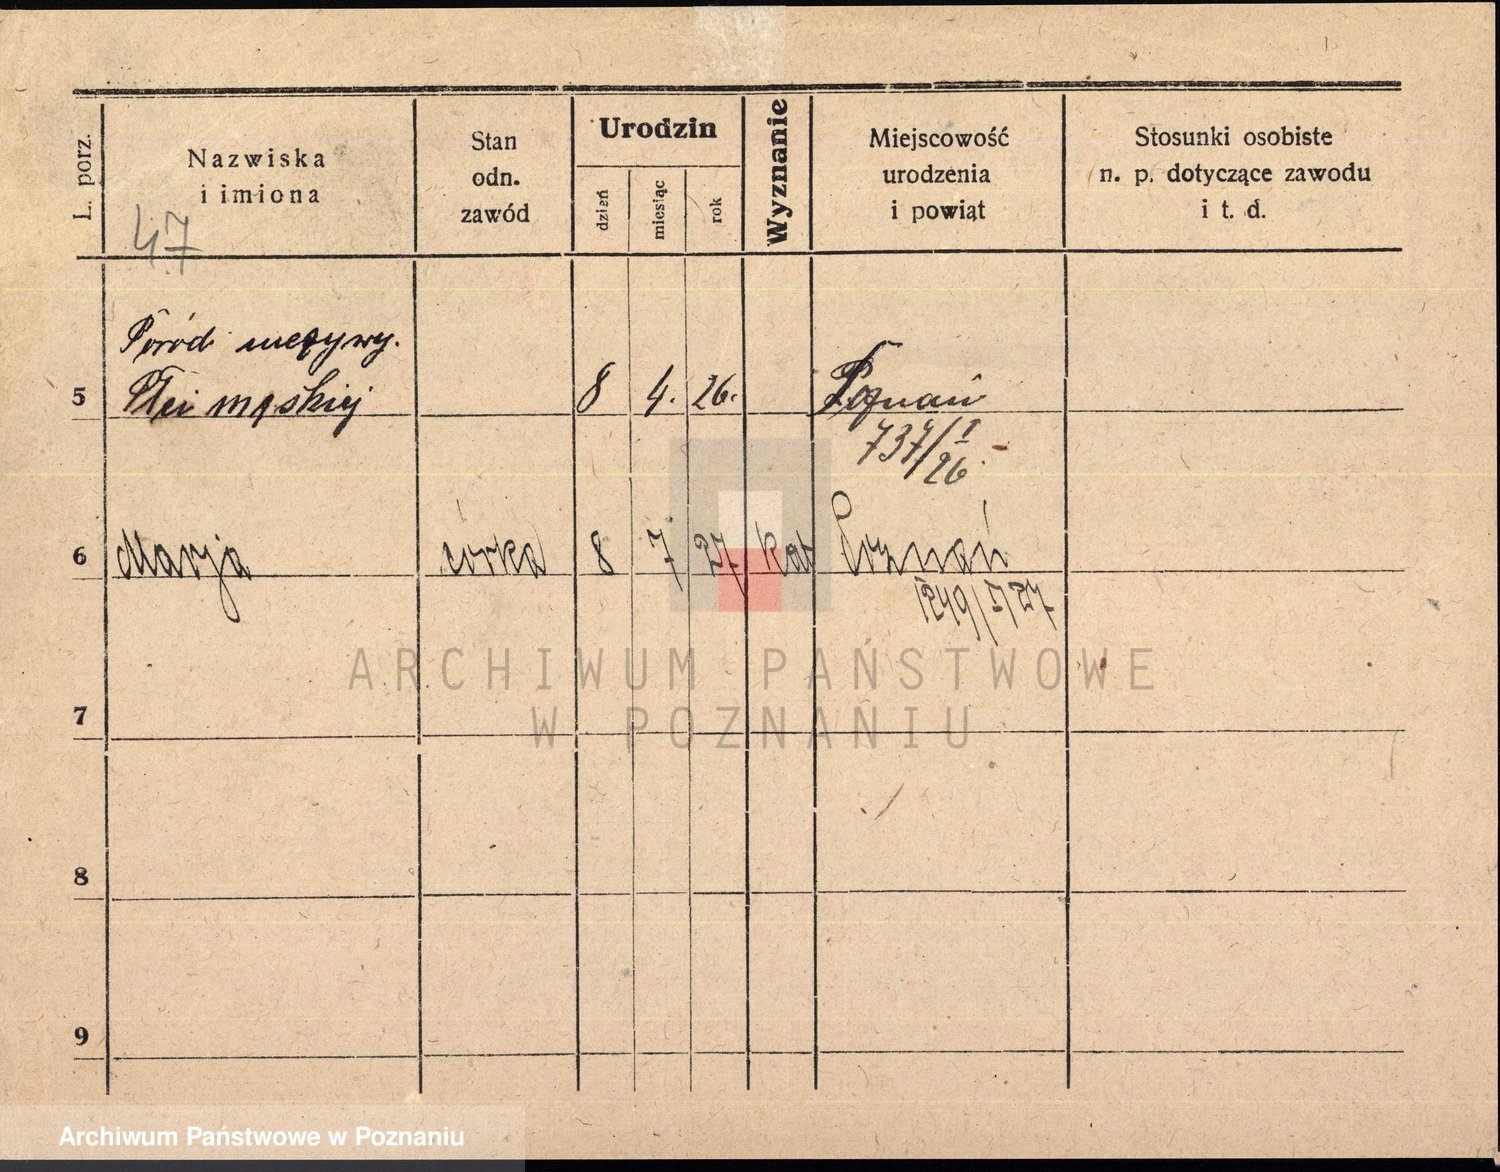 L. porz.
Nazwiska
i imiona
47
Stan
odn.
zawód
Urodzin
dzień
miesiąc
rok
Wyznanie
Miejscowość
urodzenia
i powiąt
Stosunki osobiste
n. p. dotyczące zawodu
i t. d.
Poród nieżywy.
5 Płci męskiej 8 4. 26. Poznań
737/I
26.
6 Marja córka 8 7 27 kat Poznań
1249/I/27
ARCHIWUM PAŃSTWOWE
W POZNANIU
7
8
9
Archiwum Państwowe w Poznaniu